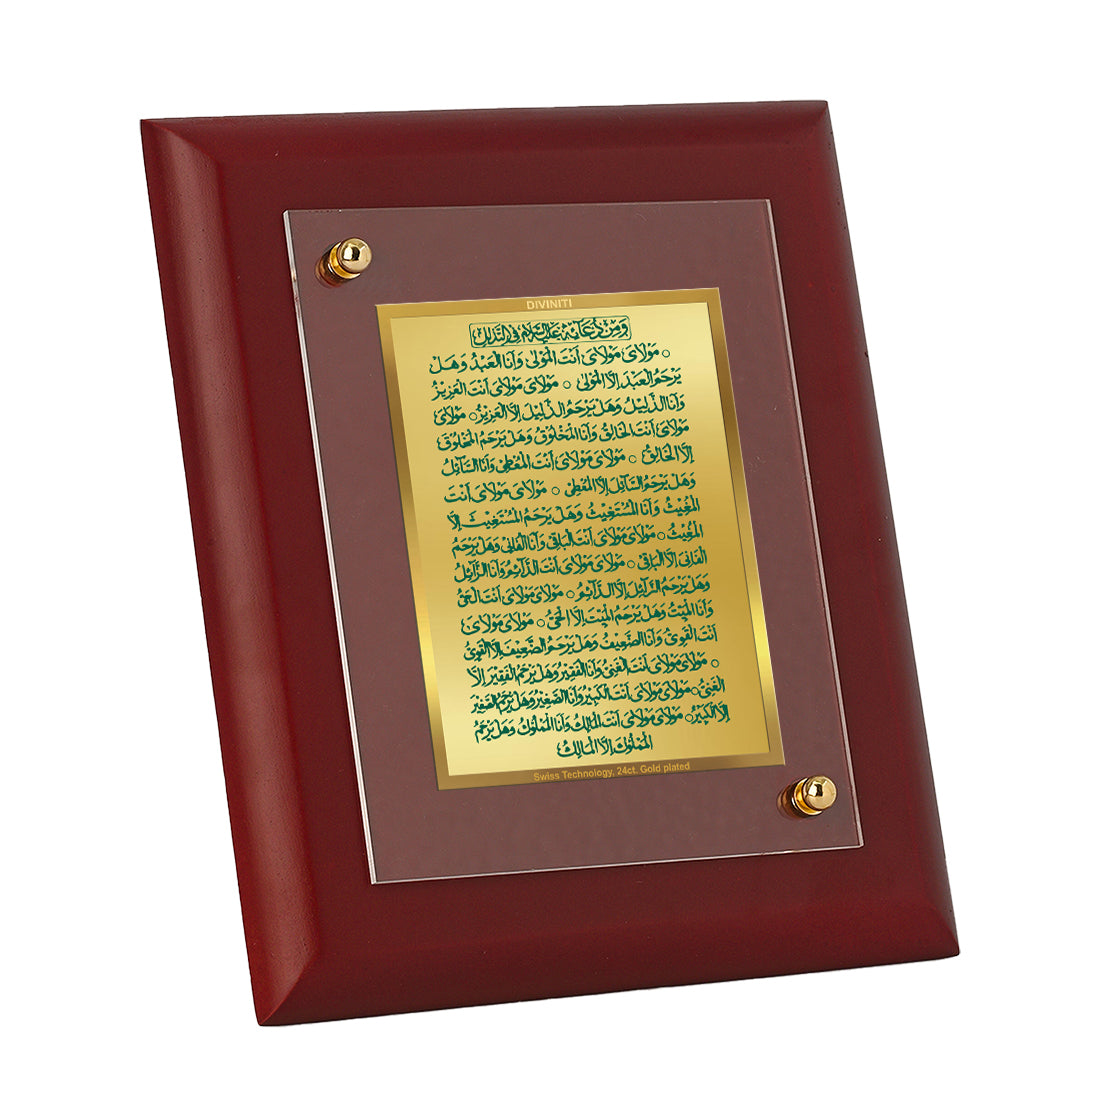 DIVINITI
وَمِنْ دُعَائِهٖ عَلَيْهِ السَّلَامُ فِى التَّذَلُّلِ
○ مَوْلَاىَ مَوْلَاىَ اَنْتَ الْمَوْلٰى وَاَنَا الْعَبْدُ وَهَلْ
يَرْحَمُ الْعَبْدَ اِلَّا الْمَوْلٰى ○ مَوْلَاىَ مَوْلَاىَ اَنْتَ الْعَزِيْزُ
وَاَنَا الذَّلِيْلُ وَهَلْ يَرْحَمُ الذَّلِيْلَ اِلَّا الْعَزِيْزُ ○ مَوْلَاىَ
مَوْلَاىَ اَنْتَ الْخَالِقُ وَاَنَا الْمَخْلُوْقُ وَهَلْ يَرْحَمُ الْمَخْلُوْقَ
اِلَّا الْخَالِقُ ○ مَوْلَاىَ مَوْلَاىَ اَنْتَ الْمُعْطِىْ وَاَنَا السَّآئِلُ
وَهَلْ يَرْحَمُ السَّآئِلَ اِلَّا الْمُعْطِىْ ○ مَوْلَاىَ مَوْلَاىَ اَنْتَ
الْمُغِيْثُ وَاَنَا الْمُسْتَغِيْثُ وَهَلْ يَرْحَمُ الْمُسْتَغِيْثَ اِلَّا
الْمُغِيْثُ ○ مَوْلَاىَ مَوْلَاىَ اَنْتَ الْبَاقِىْ وَاَنَا الْفَانِىْ وَهَلْ يَرْحَمُ
الْفَانِىَ اِلَّا الْبَاقِىْ ○ مَوْلَاىَ مَوْلَاىَ اَنْتَ الدَّآئِمُ وَاَنَا الزَّآئِلُ
وَهَلْ يَرْحَمُ الزَّآئِلَ اِلَّا الدَّآئِمُ ○ مَوْلَاىَ مَوْلَاىَ اَنْتَ الْحَىُّ
وَاَنَا الْمَيِّتُ وَهَلْ يَرْحَمُ الْمَيِّتَ اِلَّا الْحَىُّ ○ مَوْلَاىَ مَوْلَاىَ
اَنْتَ الْقَوِىُّ وَاَنَا الضَّعِيْفُ وَهَلْ يَرْحَمُ الضَّعِيْفَ اِلَّا الْقَوِىُّ
○ مَوْلَاىَ مَوْلَاىَ اَنْتَ الْغَنِىُّ وَاَنَا الْفَقِيْرُ وَهَلْ يَرْحَمُ الْفَقِيْرَ اِلَّا
الْغَنِىُّ ○ مَوْلَاىَ مَوْلَاىَ اَنْتَ الْكَبِيْرُ وَاَنَا الصَّغِيْرُ وَهَلْ يَرْحَمُ الصَّغِيْرَ
اِلَّا الْكَبِيْرُ ○ مَوْلَاىَ مَوْلَاىَ اَنْتَ الْمَالِكُ وَاَنَا الْمَمْلُوْكُ وَهَلْ يَرْحَمُ
الْمَمْلُوْكَ اِلَّا الْمَالِكُ
Swiss Technology, 24ct. Gold plated